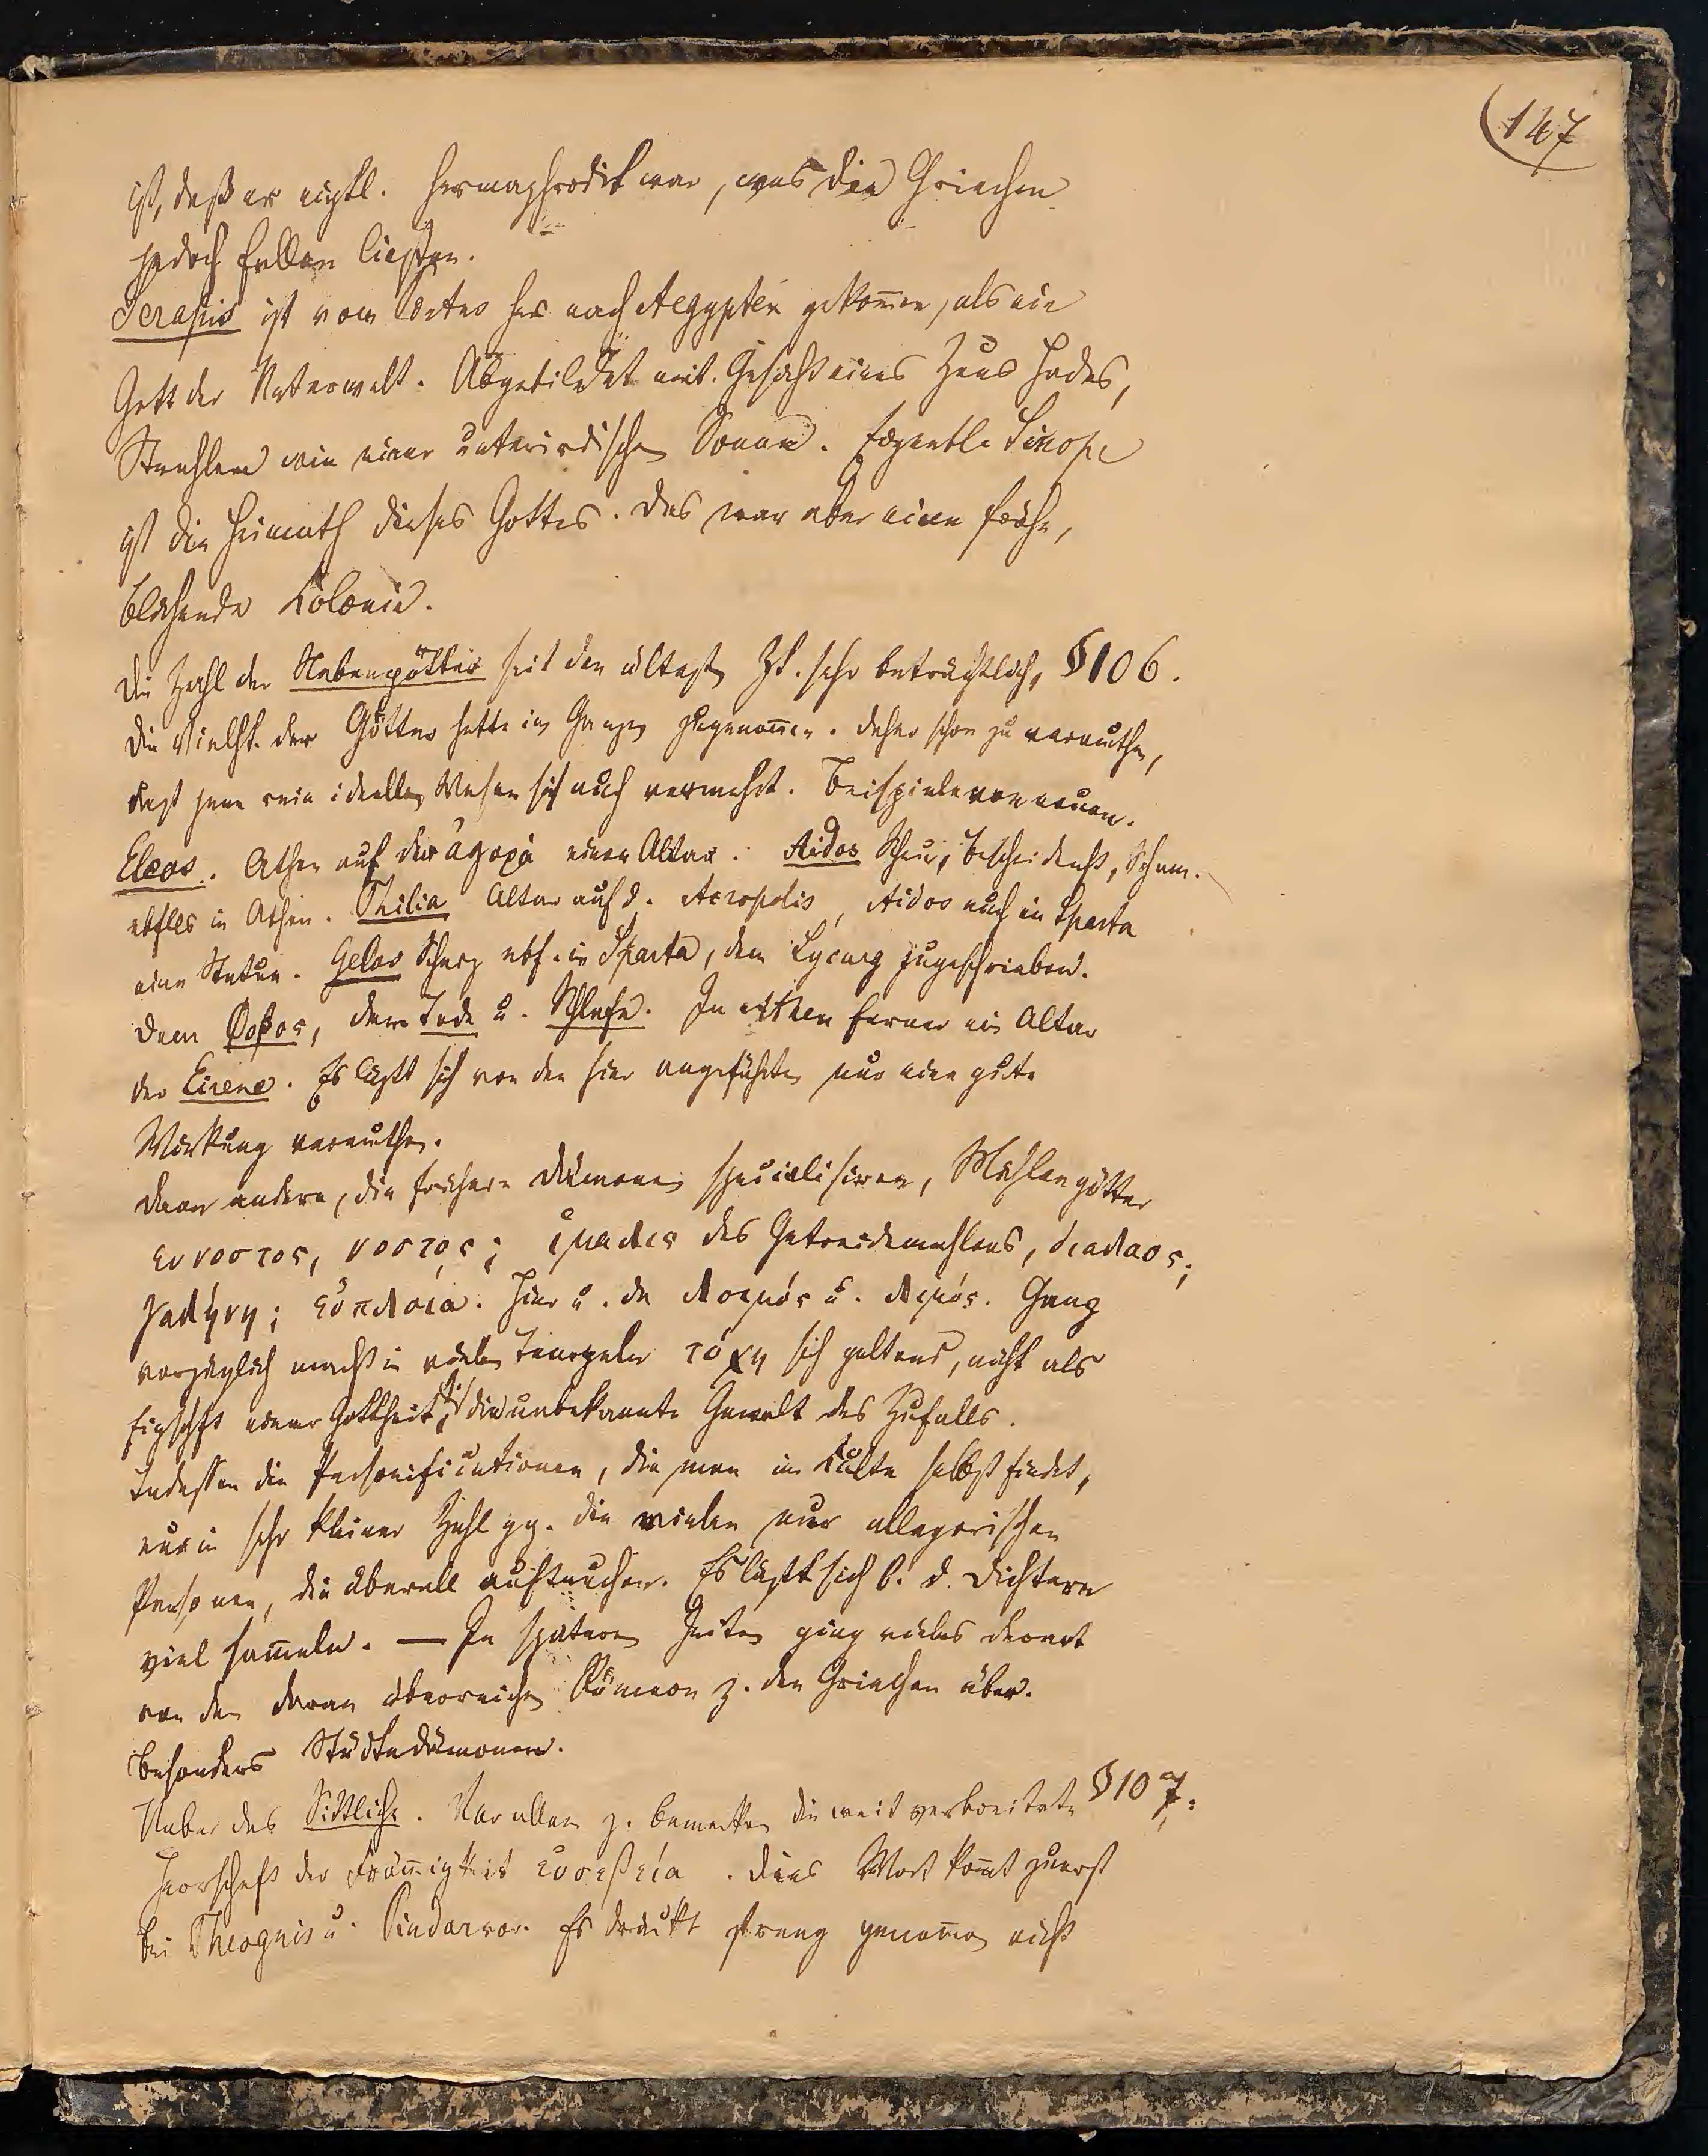 (147
ist, daß er eigtl. Hermaphrodit war, was die Griechen
jedoch fallen ließen.
Serapis ist vom Pontus her nach Aegypten gekom̅en, als ein
Gott der Unterwelt. Abgebildet mit Gesicht eines Zeus Hades,
Strahlen wie einer unterirdischen Sonne. Sinope
ist die Heimath dieses Gottes. Das war aber eine frühe,
blühende Kolonie.
Die Zahl der Nebengötter seit den ältest. Zt. sehr beträchtlich. §106.
Die Vielht. der Götter hatte im Ganzen zugenom̅en. Daher schon zu vermuthen,
daß jene rein ideellen Wesen sich auch vermehrt. Beispiele von neuen.
Eleos. Athen auf der ἀγορά einen Altar. Aidos Scheu, Bescheidenht, Scham.
ebflls in Athen. Philia Altar auf d. Acropolis, Aidos auch in Sparta
eine Statue. Gelos Scherz ebf. in Sparta, dem Lycurg zugeschrieben.
Dem Φοβος, dem Tode u. Schlafe. In Athen ferner ein Altar
der Eirene. Es läßt sich von den hier angeführten nur eine gute
Wirkung vermuthen.
Dann andere, die frühere Dämonen specialisiren, Mühlengötter
ευνοστος, νοστος; ἱμαλις des Getreidemahlens,
γαλήνη; εὐπλοία. Hier u. da λοιμός u. λιμός. Ganz
vorzüglich macht in vielen Tempeln τύχη sich geltend, nicht als
Eigschft einer Gottheit, die unbekannte Gewalt des Zufalls.
Indessen die Personificationen, die man im Culte selbst findet,
nur in sehr kleiner Zahl gg. die vielen nur allegorischen
Personen, die überall auftauchen. Es läßt sich b. d. Dichtern
viel sam̅eln. — In spätern Zeiten ging vieles derart
von den daran überreichen Römern z. den Griechen über.
Besonders Städtedämonen.
Ueber das Sittliche. Vor allem z. bemerken die weit verbreitete §107.
Herrschaft der Fröm̅igkeit εὐσεβεία. Dies Wort kom̅t zuerst
bei Theognis u. Pindar vor. Es drückt streng genom̅en nicht